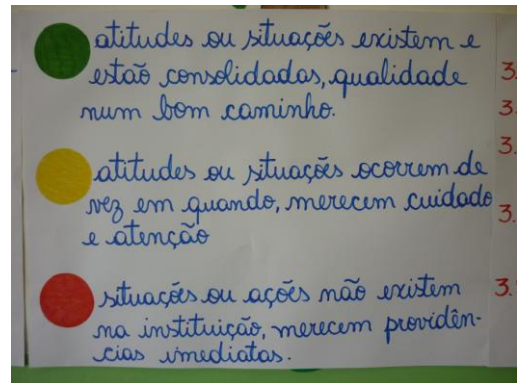 atitudes ou situações existem e
estaõ consolidadas, qualidade
num bom caminho.
atitudes ou situações ocorrem de
vez em quando, merecem cuidado
e atenção
situações ou ações não existem
na instituição, merecem providên-
cias imediatas.
3.
3.
3.
3.
3.